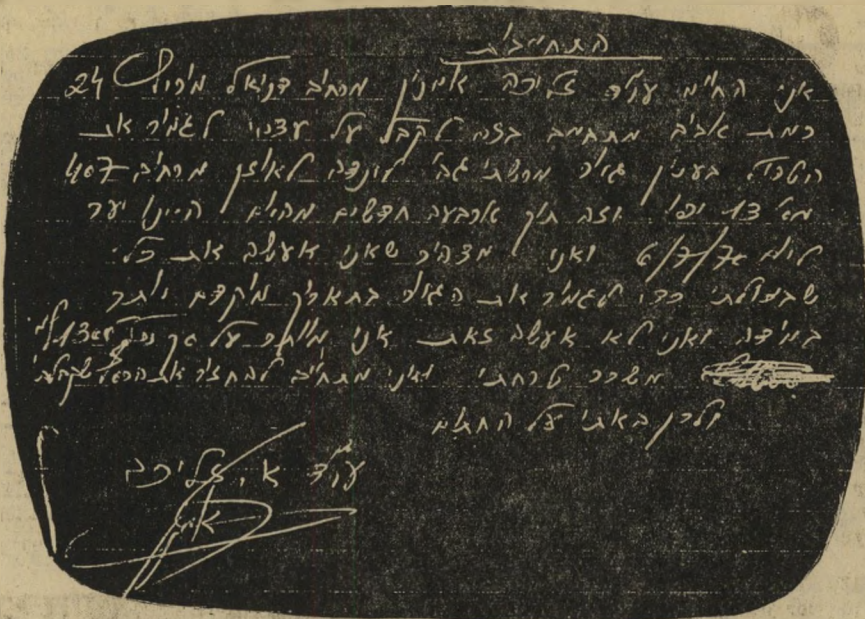 התחייבות
אני הח״מ עו״ד זליכה איינין מרחוב דניאל מירוץ 24
רמת אביב מתחייב בזה לקבל על עצמי לגמור את
הטיפול בענין גירו מרשתי גב׳ לאיזן מרחוב 407
מס 13 יפו וזה תוך ארבעה חדשים מהיום היינו עד
ליום 6/7/74 ואני מצהיר שאני אעשה את כל
שביכולתי כדי לגמור את הגירו בתאריך מוקדם יותר
במידה ואני לא אעשה זאת אני מוותר על סך
משכר טרחתי ואני מתחייב להחזיר את הכסף שקבלתי
ולכן באתי על החתום
עו״ד א. זליכה